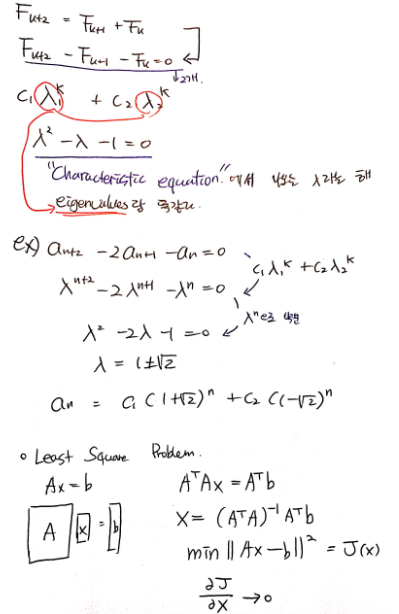 F_{k+2} = F_{k+1} + F_k
F_{k+2} - F_{k+1} - F_k = 0
↓2개.
c_1 λ_1^k + c_2 λ_2^k
λ^2 - λ - 1 = 0
"Characteristic equation."에서 나오는 λ라는 해
eigenvalues랑 똑같다.
ex) a_{n+2} - 2a_{n+1} - a_n = 0
c_1 λ_1^k + c_2 λ_2^k
λ^{n+2} - 2λ^{n+1} - λ^n = 0
λ^n으로
λ^2 - 2λ - 1 = 0
λ = 1±√2
a_n = c_1 (1+√2)^n + c_2 (1-√2)^n
o Least Square Problem.
Ax = b A^T Ax = A^T b
A x = b
X = (A^T A)^{-1} A^T b
min ||Ax-b||^2 = J(x)
∂J/∂X → 0